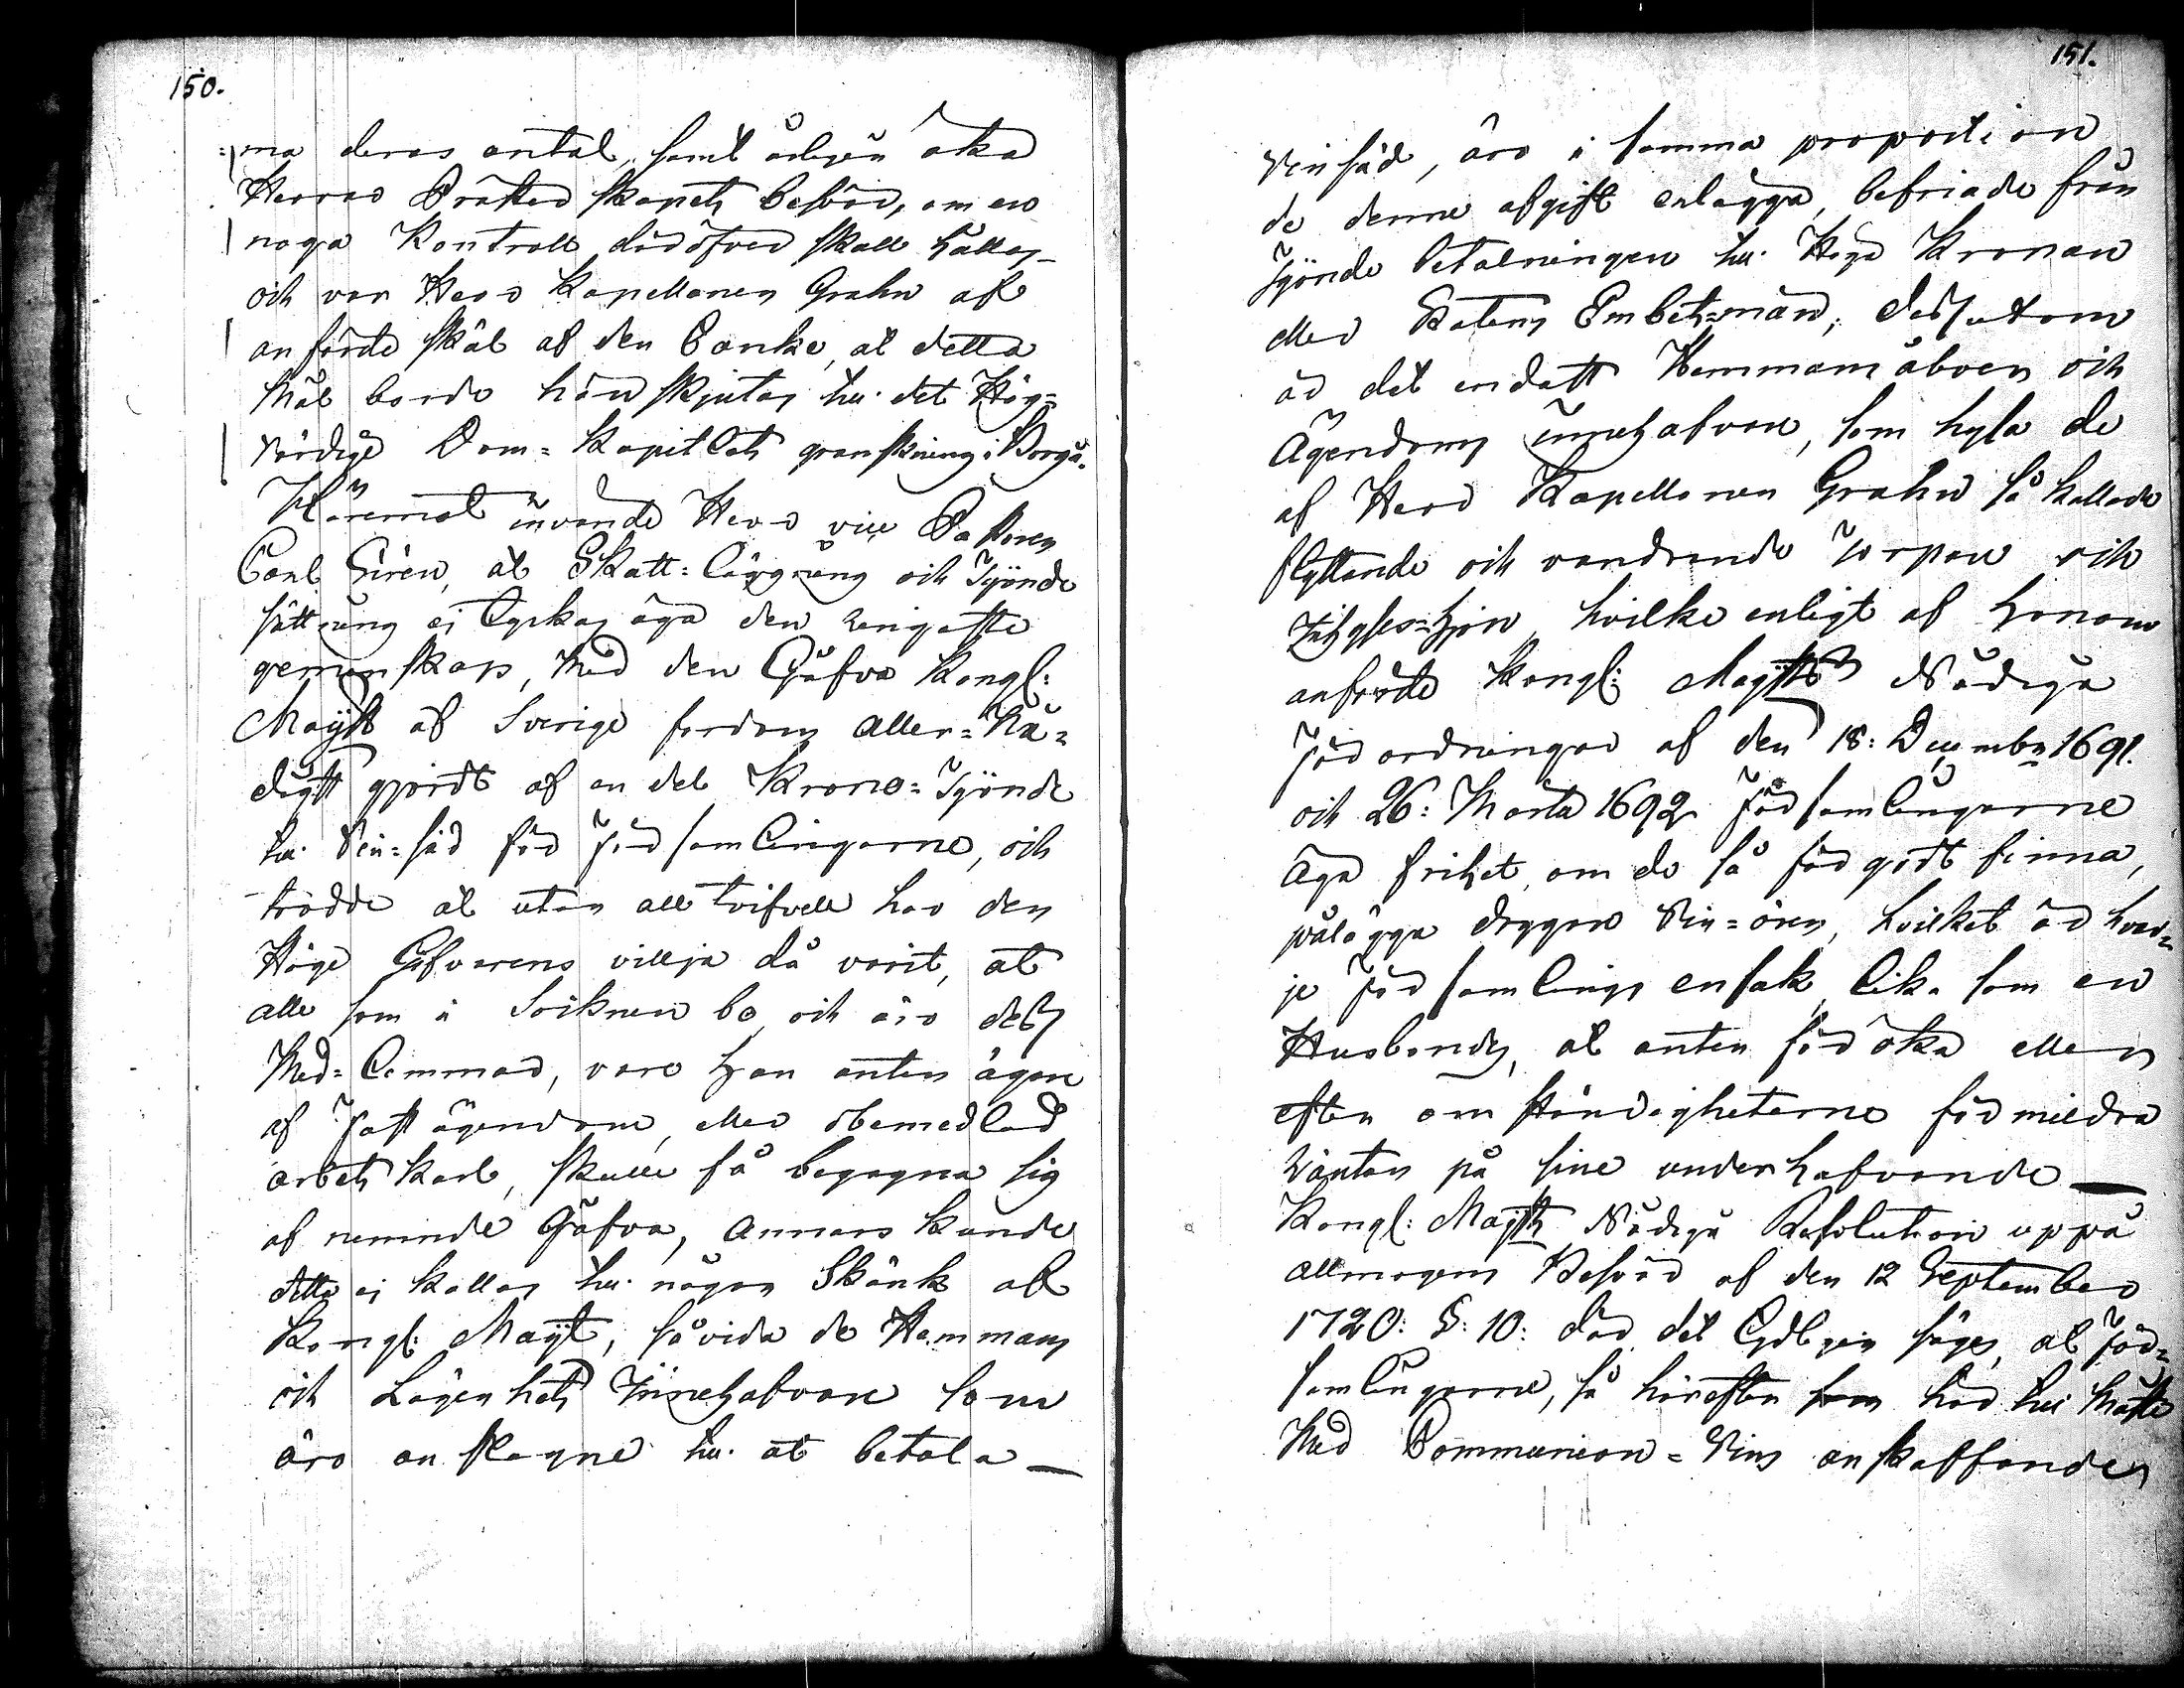 150.
ma deras antal, samt årligen öka
Herrar Prästerskapets besvär, om en
noga Kontroll däröfver skall hållas
och var Herr Kapellanen Grahn af
anförde skäl af den tanke, at detta
mål borde hänskjutas till det Hög=
värdige Dom=Kapitlets granskning i Borgå.
Häremot invände Herr vice Pastoren
Carl Sirén, at Skatt=läggning och Tjonde
sättning ej lyckas äga den ringaste
gemenskap, med den Gåfva Kongl:
Majst af Sverige fordom Aller=Nå=
digst gjordt af en del Krono=Tjonde
till Vin=säd för Församlingarne, och
trodde at utan allt tvifvell har den
Höge Gifvarens villja då varit, at
alle som i Socknen bo och äro dess
Med=lemmar, vare han anten ägare
af Fast ägendom, eller obemedlad
arbets karl, skulle få begagna sig
af nemnde Gåfva, annars kunde
detta ej kallas till någon Skänk af
Kongl: Majst, såvida de Hemmans
och Lägenhets Innehafvare som
äro anslagne till at betala
151.
Vinsäd, äro i samma proportion
de denne afgift erlägga, befriade från
Tjonde betalningen till Höga Kronan
eller Statens Embets=män; dessutom
är det endast Hemmans åboer och
Ägendoms innehafvare, som hysa de
af Herr Kapellanen Grahn så kallade
flyttande och vandrande Torpare och
Inhyses=hjon, hvilke enligt af honom
anförde Kongl: Majsts Nådiga
Förordningar af den 18: December 1691.
och 26: Martii 1692 Församlingarne
äga frihet, om de så för godt finna,
pålägga dryga Vin=ören, hvilket är hvar=
je Församlings ensak lika som en
Husbondes, at anten föröka eller
efter omständigheterne förmildra
Räntan på sine underhafvande
Kongl: Majsts Nådiga Resolution uppå
allmogens Besvär af den 12 September
1720: §: 10: där det tydligen säges, at För=
samlingarne, så härefter som här till måste
med Communion=Vins anskaffandes